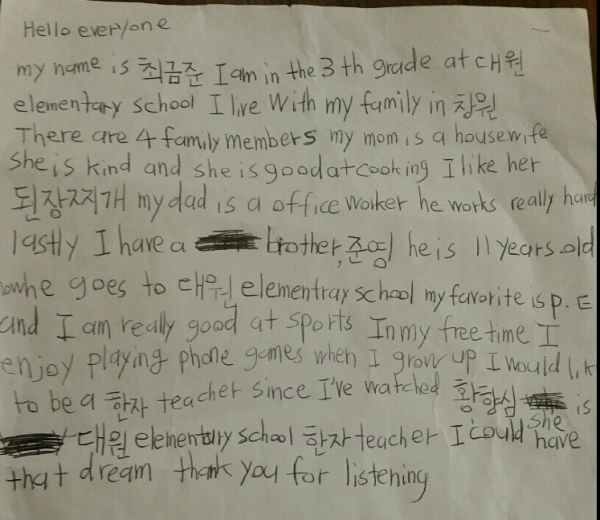 Hello everyone
my name is 최금준 I am in the 3 th grade at 대원
elementary school I live with my family in 창원
There are 4 family members my mom is a housewife
she is kind and she is good at cooking I like her
된장찌개 my dad is a office worker he works really hard
lastly I have a brother, 준영 he is 11 years old
now he goes to 대원 elementray school my favorite is p. E
and I am really good at sports In my free time I
enjoy playing phone games when I grow up I would lik
to be a 한자 teacher since I've watched 황향심 is
she
대원 elementary school 한자 teacher I could have
that dream thank you for listening